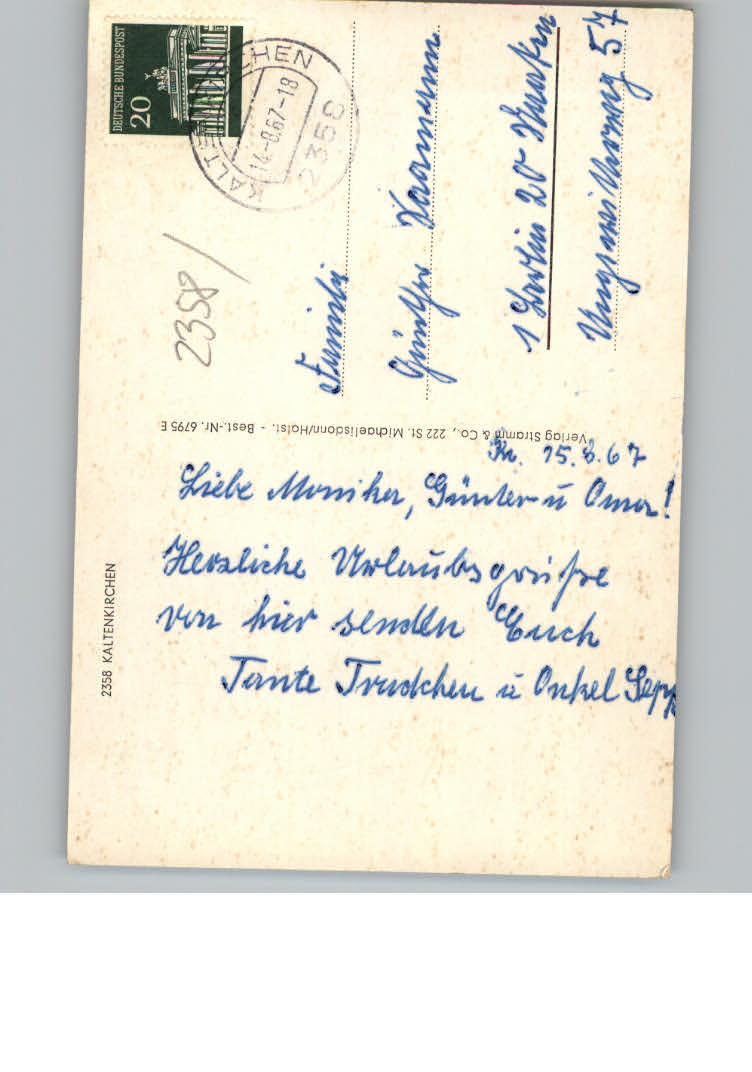 DEUTSCHE BUNDESPOST
20
KALTENKIRCHEN
14.-8.67-18
2358
2358/
Familie
Günther
1 Berlin 20
57
Verlag Stramm & Co., 222 St. Michaelisdonn/Holst. - Best.-Nr. 6795 E
2358 KALTENKIRCHEN
15.8.67
Liebe Monika, Günter u Oma!
Herzliche Urlaubsgrüße
von hier senden Euch
Tante Trudchen u Onkel Sepp